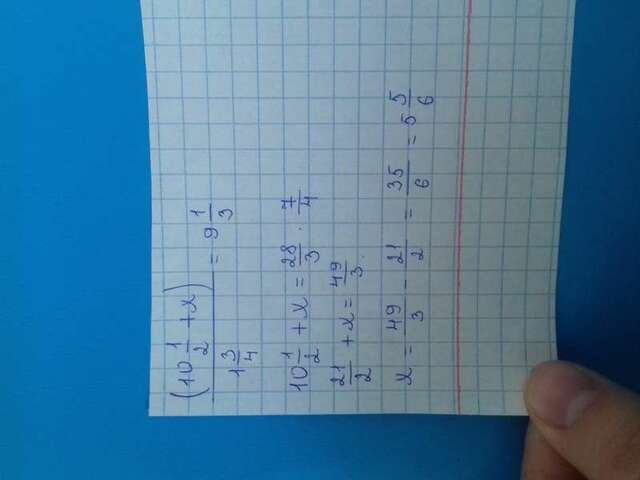 (10 1/2 + x) / 1 3/4 = 9 1/3
10 1/2 + x = 28/3 · 7/4
21/2 + x = 49/3
x = 49/3 - 21/2 = 35/6 = 5 5/6